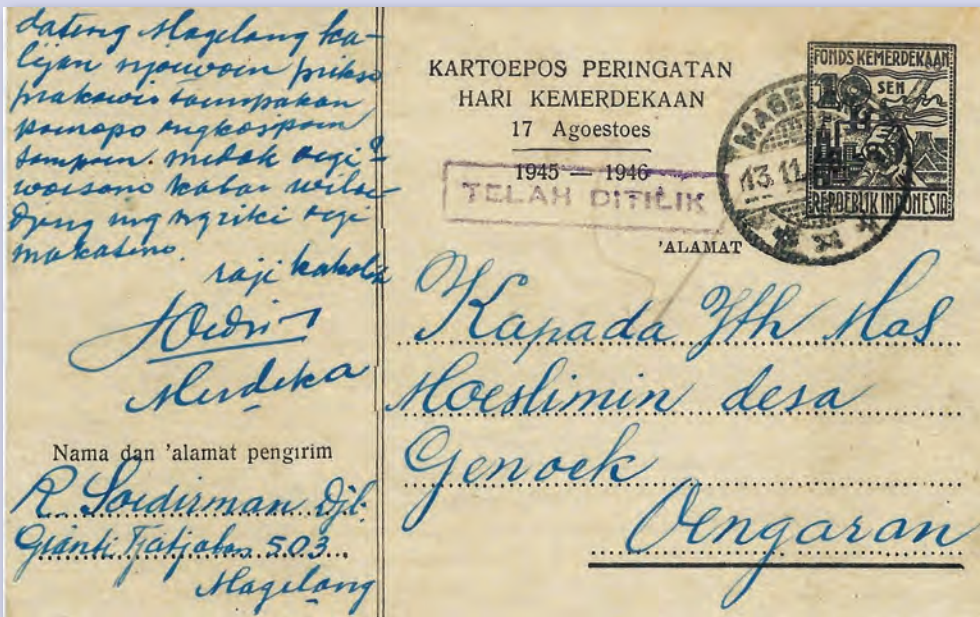 dateng Magelang ka-
lijan njouwoin prikso
prakowis toumpakan
ponopo ongkospoen
sampoen.
woesono kabar
Djeng ng ngriki
makaten.
raji kakoeh
Merdeka
Nama dan 'alamat pengirim
R. Soedirman Djl.
Gianti 503
Magelang
KARTOEPOS PERINGATAN
HARI KEMERDEKAAN
17 Agoestoes
1945 — 1946
TELAH DITILIK
FONDS KEMERDEKAAN
10 SEN
REPOEBLIK INDONESIA
MAGELANG
13.11
'ALAMAT
Kapada Yth Mas
Moeslimin desa
Genoek
Oengaran